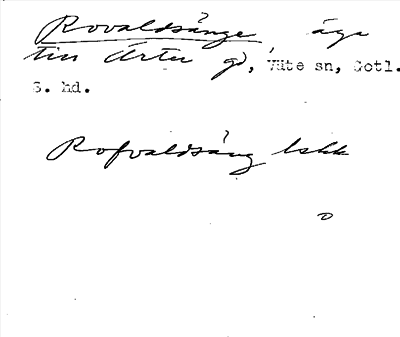 Rovaldsänge, äga
till Arter gd, Väte sn, Gotl.
S. hd.
Rofvaldsäng lskk